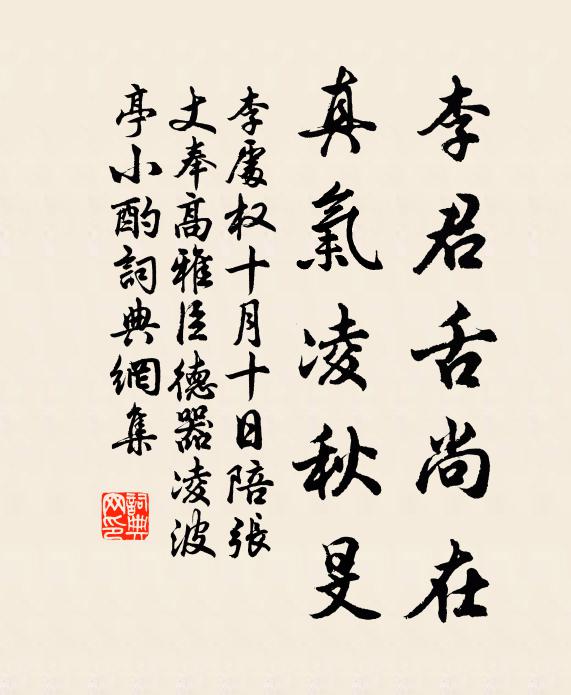 李君舌尚在
真氣凌秋旻
李處权十月十日陪張
丈奉高雅臣德器凌波
亭小酌詞典網集
詞典网印